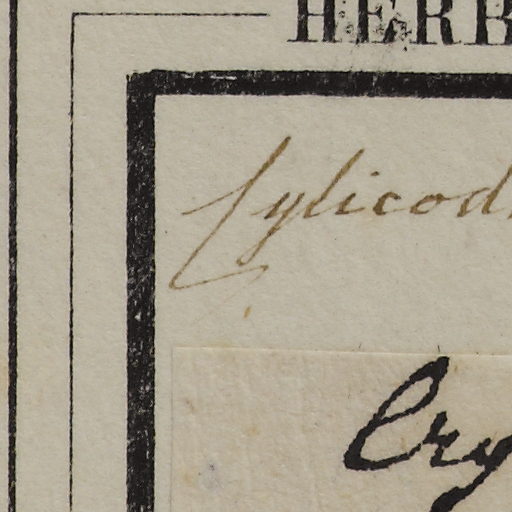 HERB
Cylicod
Cry